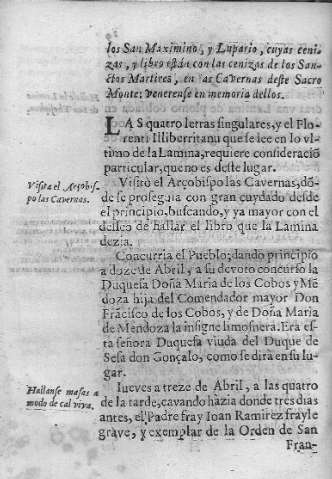 los San Maximino, y Lupario, cuyas ceni
zas, y libro están con las cenizas de los San-
ctos Martires, en las Cavernas deste Sacro
Monte: venerense en memoria dellos.
LAS quatro letras singulares, y el Flo-
renti Illiberritanu que se lee en lo vl-
timo de la Lamina, requiere consideració
particular, que no es deste lugar.
Visita el Arçobis
po las Cavernas.
Visitò el Arçobispo las Cavernas, dō-
de se proseguia con gran cuydado desde
el principio, buscando, y ya mayor con el
desseo de hallar el libro que la Lamina
dezia.
Concurria el Pueblo; dando principio
a doze de Abril, a su devoto concurso la
Duquesa Doña Maria de los Cobos y Mē
doza hija del Comendador mayor Don
Frācisco de los Cobos, y de Doña Maria
de Mendoza la insigne limosnera. Era es-
ta señora Duquesa viuda del Duque de
Sesa don Gonçalo, como se dirà en su lu-
gar.
Hallanse masas a
modo de cal viva.
Iueves a treze de Abril, a las quatro
de la tarde, cavando hàzia donde tres dias
antes, el Padre fray Ioan Ramirez frayle
grave, y exemplar de la Orden de San
Fran-